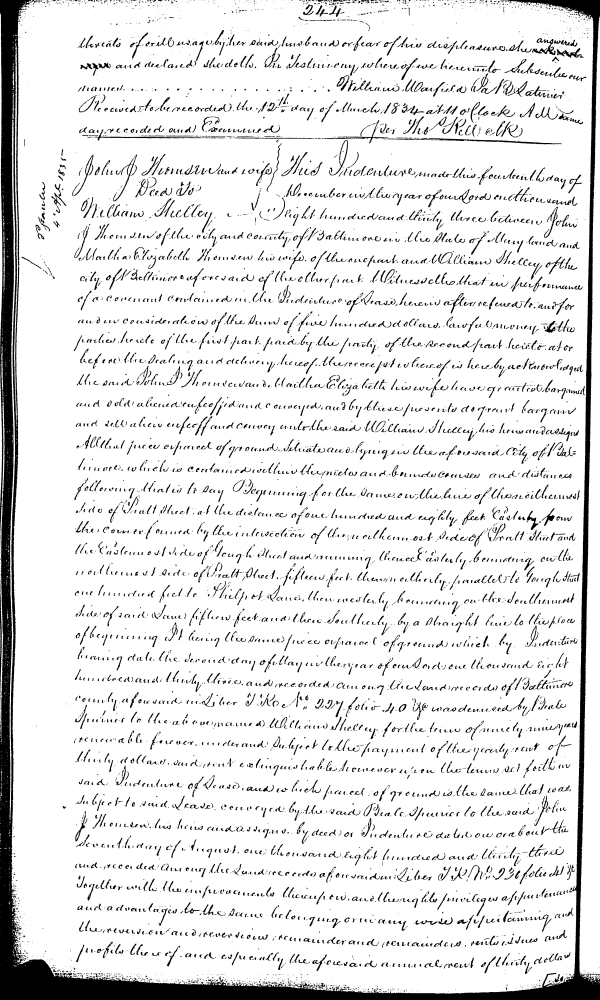 244
threats of or ill usage by her said husband or fear of his displeasure she answered
and declared she doth. In Testimony where of we hereunto Subscribe our
names . . . . . . . . . . . . . . William Warfield Ja B Latimer
Received to be recorded the 12th day of March 1834 at 11 oClock A M same
day recorded and Examined per Thos Kell clk
John J Thomsen and wife
Deed To
William Shelley
This Indenture made this fourteenth day of
December in the year of our Lord one thousand
Eight hundred and thirty three between John
J Thomsen of the city and county of Baltimore in the State of Maryland and
Martha Elizabeth Thomsen his wife of the one part and William Shelley of the
city of Baltimore aforesaid of the other part Witnesseth that in performance
of a covenant contained in the Indenture of Lease herein after refered to and for
and in consideration of the sum of five hundred dollars lawful money to the
parties hereto of the first part paid by the party of the second part hereto at or
before the sealing and delivery hereof the receipt whereof is hereby acknowledged
the said John J Thomsen and Martha Elizabeth his wife have granted bargained
and sold aliened enfeoffed and conveyed and by these presents do grant bargain
and sell alien enfeoff and convey unto the said William Shelley his heirs and assigns
All that piece or parcel of ground Situate and lying in the aforesaid City of Bal-
timore which is contained within the metes and bounds courses and distances
following that is to say Beginning for the same on the line of the northernmost
side of Pratt Street at the distance of one hundred and eighty feet Easterly from
the corner formed by the intersection of the northernmost side of Pratt Street and
the Easternmost side of Gough Street and running thence Easterly bounding on the
northernmost side of Pratt Street fifteen feet then northerly parallel to Gough Street
one hundred feet to Philpot Lane then westerly bounding on the Southernmost
side of said Lane fifteen feet and then Southerly by a straight line to the place
of beginning It being the same piece or parcel of ground which by Indenture
bearing date the second day of May in the year of our Lord one thousand eight
hundred and thirty three and recorded among the Land records of Baltimore
county aforesaid in Liber T K No 227 folio 40 &c was demised by Beale
Spurrier to the above named William Shelley for the term of ninety nine years
renewable forever under and subject to the payment of the yearly rent of
thirty dollars said rent extinguishable however upon the terms set forth in
said Indenture of Lease and which parcel of ground is the same that was
subject to said Lease conveyed by the said Beale Spurrier to the said John
J Thomsen his heirs and assigns by deed or Indenture dated on or about the
seventh day of August one thousand eight hundred and thirty three
and recorded among the Land records aforesaid in Liber T K No 230 folio 41 &c
Together with the improvements thereupon and the rights privileges appurtenances
and advantages to the same belonging or in any wise appertaining and
the reversion and reversions remainder and remainders rents issues and
profits thereof and especially the aforesaid annual rent of thirty dollars